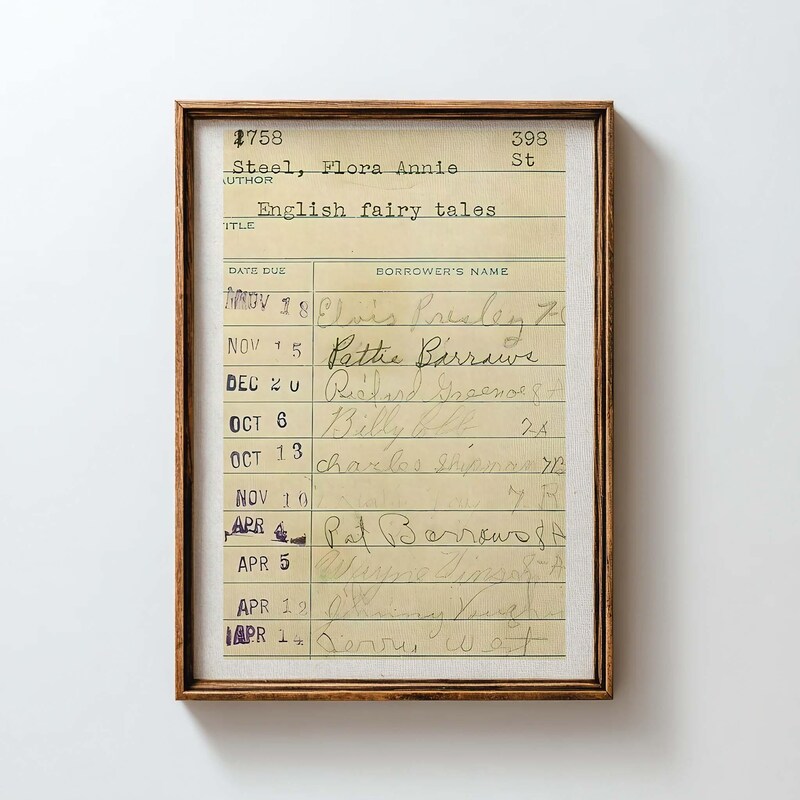 1758 398
Steel, Flora Annie St
AUTHOR
English fairy tales
TITLE
DATE DUE BORROWER'S NAME
NOV 18 Elvis Presley 7-C
NOV 15 Pattie Barrows
DEC 20 Richard
OCT 6 Billy 7-A
OCT 13 Charles Shipman 7B
NOV 10 7 B
APR 4 Pat Barrows 8A
APR 5 Wayne 8-A
APR 12 Jimmy Vaughn
APR 14 Jerry West